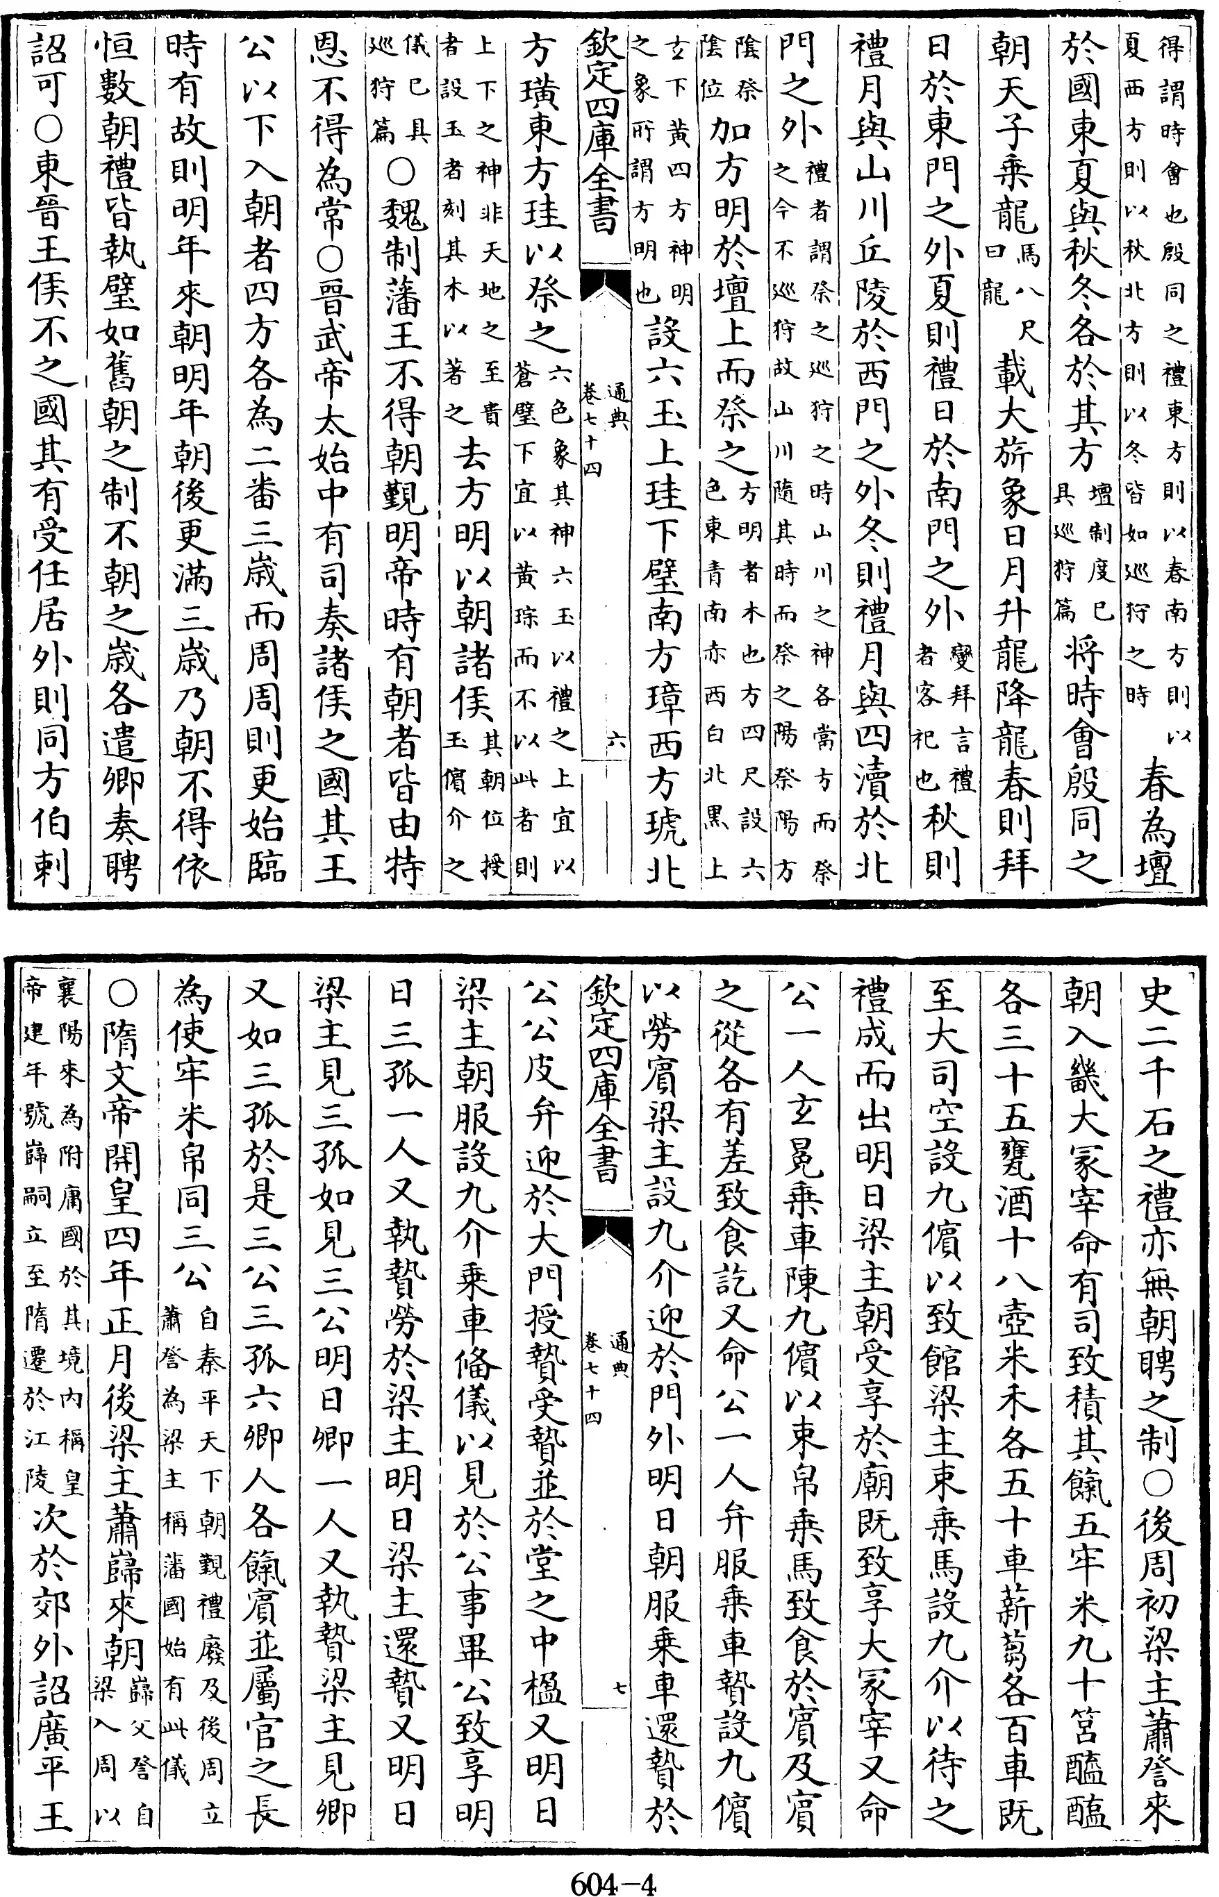 得謂時會也殷同之禮東方則以春南方則以
夏西方則以秋北方則以冬皆如巡狩之時
春為壇
於國東夏與秋冬各於其方
壇制度已
具巡狩篇
將時會殷同之
朝天子乘龍
馬八尺
曰龍
載大旂象日月升龍降龍春則拜
日於東門之外夏則禮日於南門之外
變拜言禮
者客祀也
秋則
禮月與山川丘陵於西門之外冬則禮月與四瀆於北
門之外
禮者謂祭之巡狩之時山川之神各當方而祭
之今不巡狩故山川隨其時而祭之陽祭陽方
陰祭
陰位
加方明於壇上而祭之
方明者木也方四尺設六
色東青南赤西白北黑上
玄下黃四方神明
之象所謂方明也
設六玉上珪下璧南方璋西方琥北
欽定四庫全書
通典
卷七十四
六
方璜東方珪以祭之
六色象其神六玉以禮之上宜以
蒼璧下宜以黃琮而不以此者則
上下之神非天地之至貴
者設玉者刻其木以著之
去方明以朝諸侯
其朝位授
玉儐介之
儀已具
巡狩篇
○魏制藩王不得朝覲明帝時有朝者皆由特
恩不得為常○晉武帝太始中有司奏諸侯之國其王
公以下入朝者四方各為二番三歲而周周則更始臨
時有故則明年來朝明年朝後更滿三歲乃朝不得依
恒數朝禮皆執璧如舊朝之制不朝之歲各遣卿奏聘
詔可○東晉王侯不之國其有受任居外則同方伯刺
史二千石之禮亦無朝聘之制○後周初梁主蕭詧來
朝入畿大冢宰命有司致積其餼五牢米九十筥醯醢
各三十五甕酒十八壺米禾各五十車薪芻各百車既
至大司空設九儐以致館梁主束乘馬設九介以待之
禮成而出明日梁主朝受享於廟既致享大冢宰又命
公一人玄冕乘車陳九儐以束帛乘馬致食於賓及賓
之從各有差致食訖又命公一人弁服乘車贄設九儐
以勞賓梁主設九介迎於門外明日朝服乘車還贄於
欽定四庫全書
通典
卷七十四
七
公公皮弁迎於大門授贄受贄並於堂之中楹又明日
梁主朝服設九介乘車備儀以見於公事畢公致享明
日三孤一人又執贄勞於梁主明日梁主還贄又明日
梁主見三孤如見三公明日卿一人又執贄梁主見卿
又如三孤於是三公三孤六卿人各餼賓並屬官之長
為使牢米帛同三公
自秦平天下朝覲禮廢及後周立
蕭詧為梁主稱藩國始有此儀
○隋文帝開皇四年正月後梁主蕭巋來朝
巋父詧自
梁入周以
襄陽來為附庸國於其境內稱皇
帝建年號巋嗣立至隋遷於江陵
次於郊外詔廣平王
604-4